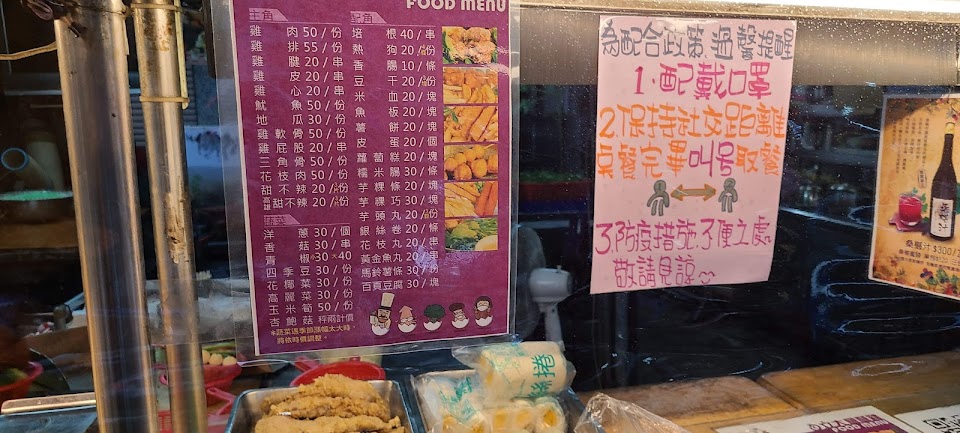 FOOD MENU
主角
雞肉 50 / 份
雞排 55 / 份
雞腱 20 / 串
雞皮 20 / 串
雞心 20 / 串
魷魚 50 / 份
地瓜 30 / 份
雞軟骨 50 / 份
雞屁股 20 / 串
三角骨 50 / 份
花枝肉 50 / 份
甜不辣 20 /
高雄甜不辣 20 /
蔬菜
洋蔥 30 / 個
香菇 30 / 串
青椒 30 40
四季豆 30 / 份
花椰菜 30 / 份
高麗菜 30 / 份
玉米筍 50 / 份
杏鮑菇 秤兩計價
*蔬菜遇季節漲幅太大時,
將依時價調整。
配角
培根 40 / 串
熱狗 20 /
香腸 10 / 條
豆干 20 /
米血 20 / 塊
魚板 20 / 塊
薯餅 20 / 塊
皮蛋 20 / 個
蘿蔔糕 20 / 塊
糯米腸 30 / 條
芋粿條 20 / 塊
芋粿巧 30 / 塊
芋頭丸 20 /
銀絲卷 20 / 條
花枝丸 20 / 串
黃金魚丸 20 / 串
馬鈴薯條 30 / 份
百頁豆腐 30 / 塊
為配合政策 溫馨提醒
1.配戴口罩
2.保持社交距離
點餐完畢叫号取餐
3.防疫措施,不便之處
敬請見諒
桑椹汁 $300/
捲絲